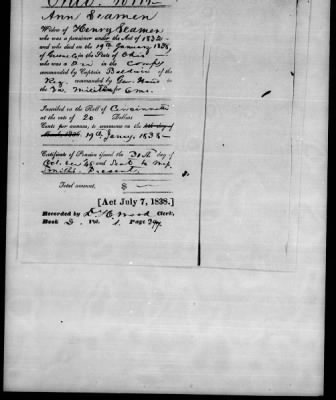 Ann Seamen
Widow of Henry Seamen
who was a pensioner under the Act of 1832
and who died on the 19th January 1838,
of Greene Co in the State of Ohio
who was a Pri in the Comp
commanded by Captain Baldwin of the
Reg commanded by Gen.
Va. Militia for 6 ms.
Inscribed in the Roll of Cincinnati
at the rate of 20 Dollars
Cents per annum, to commence on the 4th day of
March, 1836. 19th Jany. 1838
Certificate of Pension issued the 30th day of
and Sent to
Present
Total amount, $
[Act July 7, 1838.]
Recorded by Clerk,
Book D. Vol. 1. Page